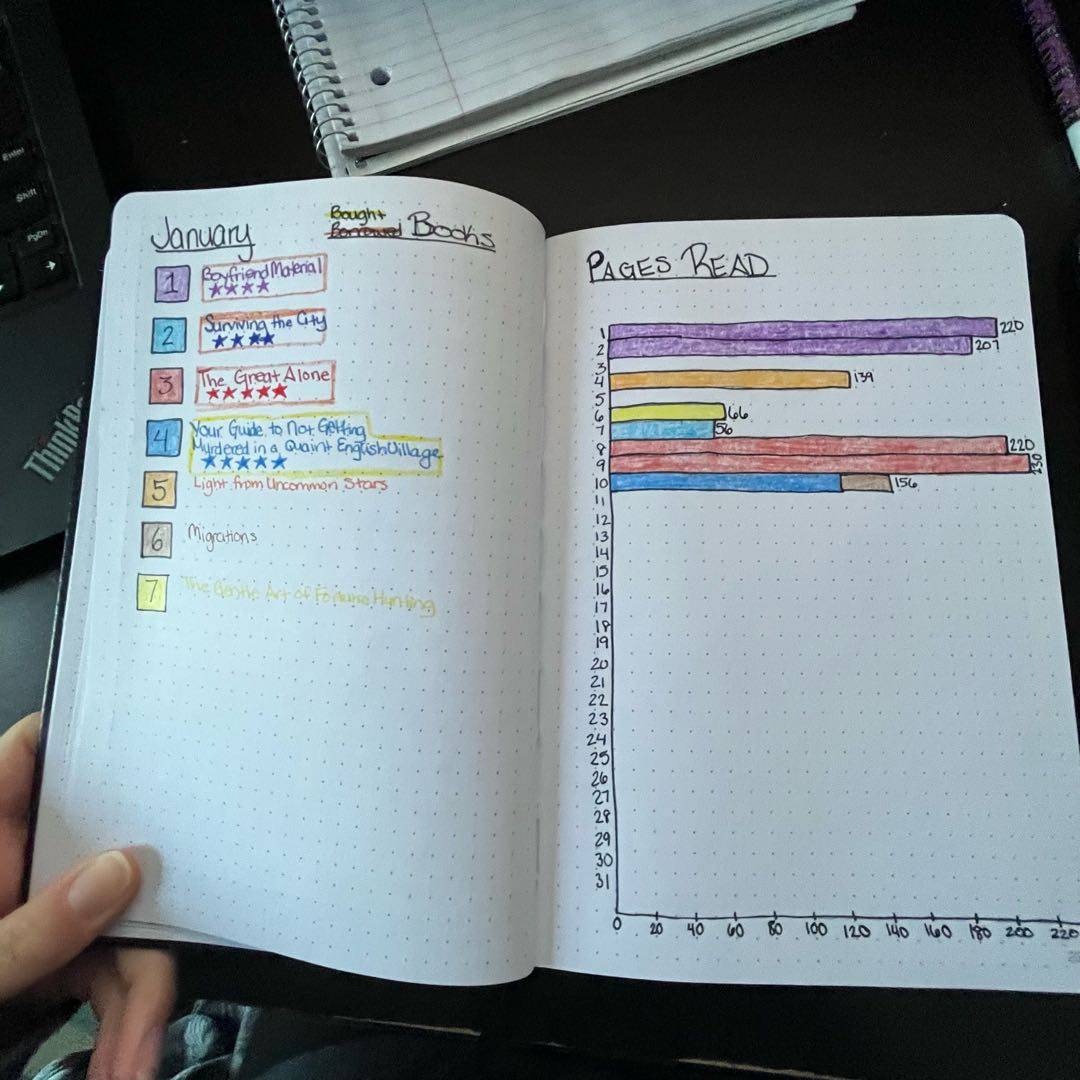 Enter
Shift
PgDn
ThinkP
January
Bought
Borrowed
Books
1
Boyfriend Material
2
Surviving the City
3
The Great Alone
4
Your Guide to Not Getting
Murdered in a Quaint English Village
5
Light from Uncommon Stars
6
Migrations
7
The Gentle Art of Fortune Hunting
PAGES READ
1 220
2 207
3
4 139
5
6 66
7 56
8 220
9 230
10 156
11
12
13
14
15
16
17
18
19
20
21
22
23
24
25
26
27
28
29
30
31
0 20 40 60 80 100 120 140 160 180 200 220